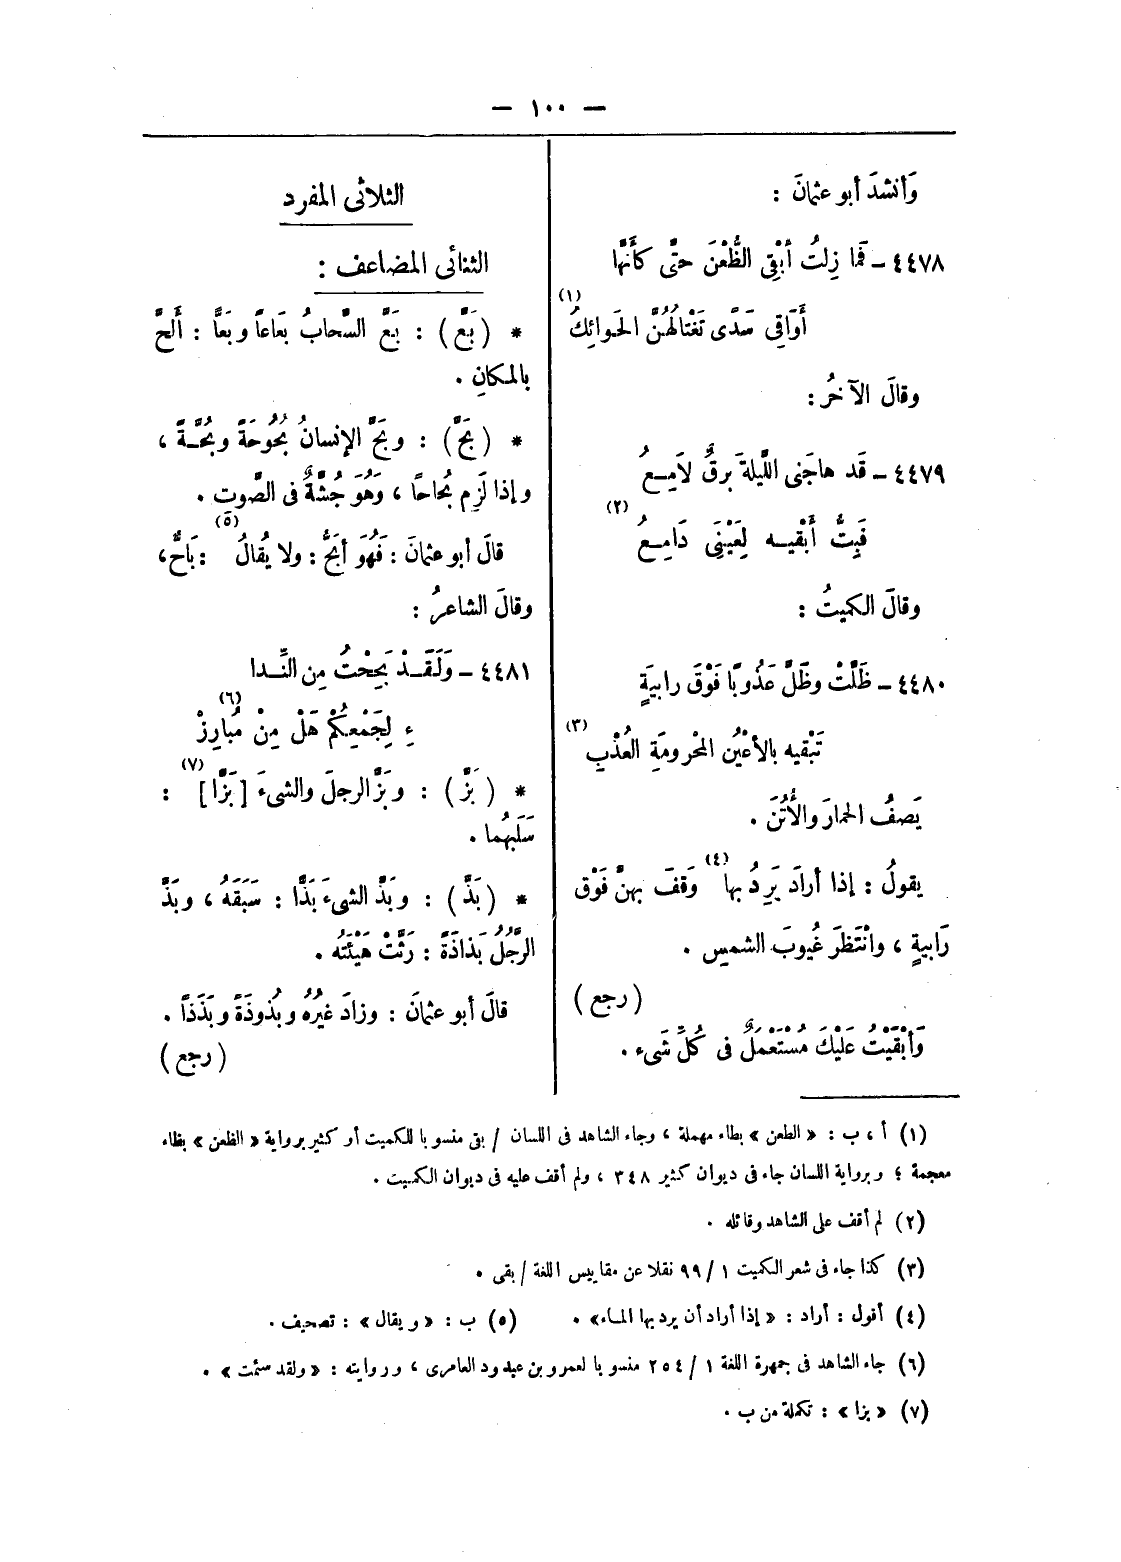 — ١٠٠ —
وَأنشدَ أبو عثمانَ :
٤٤٧٨ ـ فَما زِلتُ أبْقِى الظُّعْنَ حتَّى كأنَّها
أَوَاقِى سَدًى تَغْتالُهُنَّ الحَوائِكُ (١)
وقالَ الآخرُ :
٤٤٧٩ ـ قَد هاجَنى اللَّيلةَ برقٌ لاَمِـعُ
فَبِتُّ أَبْقيـه لِعَيْنِى دَامِـعُ (٢)
وقالَ الكميتُ :
٤٤٨٠ ـ ظَلَّتْ وظَلَّ عَذُوبًا فَوْقَ رابيَةٍ
تَبْقيه بالأعْيُن المحْرومَةِ العُذْبِ (٣)
يَصفُ الحمارَ والأُتُنَ .
يقولُ : إذا أرادَ يَرِدُ بها (٤) وَقفَ بهنَّ فَوْق
رَابيةٍ ، وانْتَظرَ غُيوبَ الشمسِ .
( رجع )
وَأَبْقَيْتُ عَليْكَ مُسْتَعْمَلٌ فى كُلِّ شَىء .
الثلاثى المفرد
الثنائى المضاعف :
* ( بَعَّ ) : بَعَّ السَّحابُ بَعَاعاً وبَعًّا : أَلحَّ
بالمكانِ .
* ( بَحَّ ) : وبَحَّ الإنسانُ بُحُوحَةً وبُحَّـةً ،
وإذا لَزِم بُحاحًا ، وَهُوَ جُشَّةٌ فى الصَّوتِ .
قالَ أبو عثمانَ : فَهُوَ أبَحُّ : ولا يُقالُ (٥) : بَاحٌّ ،
وقالَ الشاعرُ :
٤٤٨١ ـ وَلَقَـدْ بَحِحْتُ مِن النِّـدا
ءِ لِجَمْعِكُمْ هَلْ مِنْ مُبارِزْ (٦)
* ( بَزَّ ) : وبَزَّ الرجلَ والشىءَ [ بَزًّا ] (٧) :
سَلَبَهُما .
* ( بَذَّ ) : وبَذَّ الشىءَ بَذًّا : سَبَقَهُ ، وبَذَّ
الرَّجُلُ بَذاذَةً : رَثَّتْ هَيْئَتُه .
قالَ أبو عثمانَ : وزادَ غيرُهُ وبُذوذَةً وبَذَذاً .
( رجع )
(١) أ ، ب : « الطعن » بطاء مهملة ، وجاء الشاهد فى اللسان / بقى منسوبا للكميت أو كثير برواية « الظعن » بظاء
معجمة ؛ وبرواية اللسان جاء فى ديوان كثير ٣٤٨ ، ولم أقف عليه فى ديوان الكميت .
(٢) لم أقف على الشاهد وقائله .
(٣) كذا جاء فى شعر الكميت ١ / ٩٩ نقلا عن مقاييس اللغة / بقى .
(٤) أقول : أراد : « إذا أراد أن يرد بها المـاء» . (٥) ب : « ويقال » : تصحيف .
(٦) جاء الشاهد فى جمهرة اللغة ١ / ٢٥٤ منسوبا لعمرو بن عبدود العامرى ، وروايته : « ولقد سئمت » .
(٧) « بزا » : تكملة من ب .